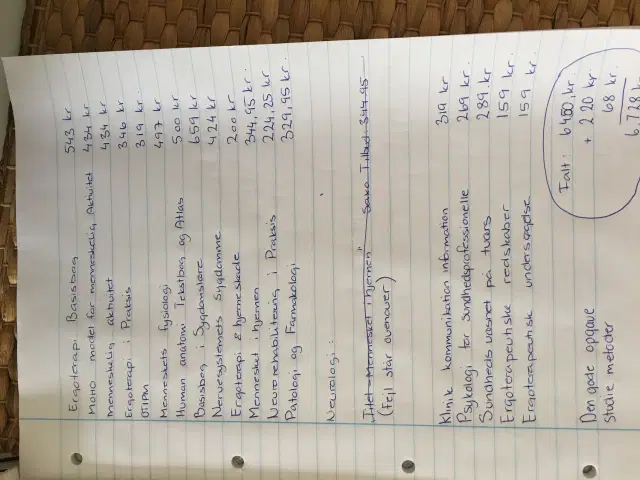 Ergoterapi Basisbog 543 kr
MOHO model for menneskelig Aktivitet 434 kr.
menneskelig aktivitet 434 kr
Ergoterapi i Praksis 346 kr
OTIPM 319 kr.
Menneskets fysiologi 497 kr
Human anatomi Tekstbog og Atlas 500 kr
Basisbog i Sygdomslære 659 kr
Nervesystemets Sygdomme 424 kr
Ergoterapi & hjerneskade 200 kr
Mennesket i hjernen 344,95 kr.
Neurorehabilitering i Praksis 224.25 kr
Patologi og Farmakologi 329,95 kr.
Neurologi:
Titel "Mennesket i hjernen" Saxo Tilbud 344.95
(Fejl står ovenover)
Klinik kommunikation information 319 kr
Psykologi for sundhedsprofessionelle 269 kr.
Sundhedsvæsnet på tværs 289 kr
Ergoterapeutiske redskaber 159 kr.
Ergoterapeutisk undersøgelse 159 kr.
Ialt: 6450,kr.
Den gode opgave + 220 kr
Studie metoder 68 kr
6.738 kr